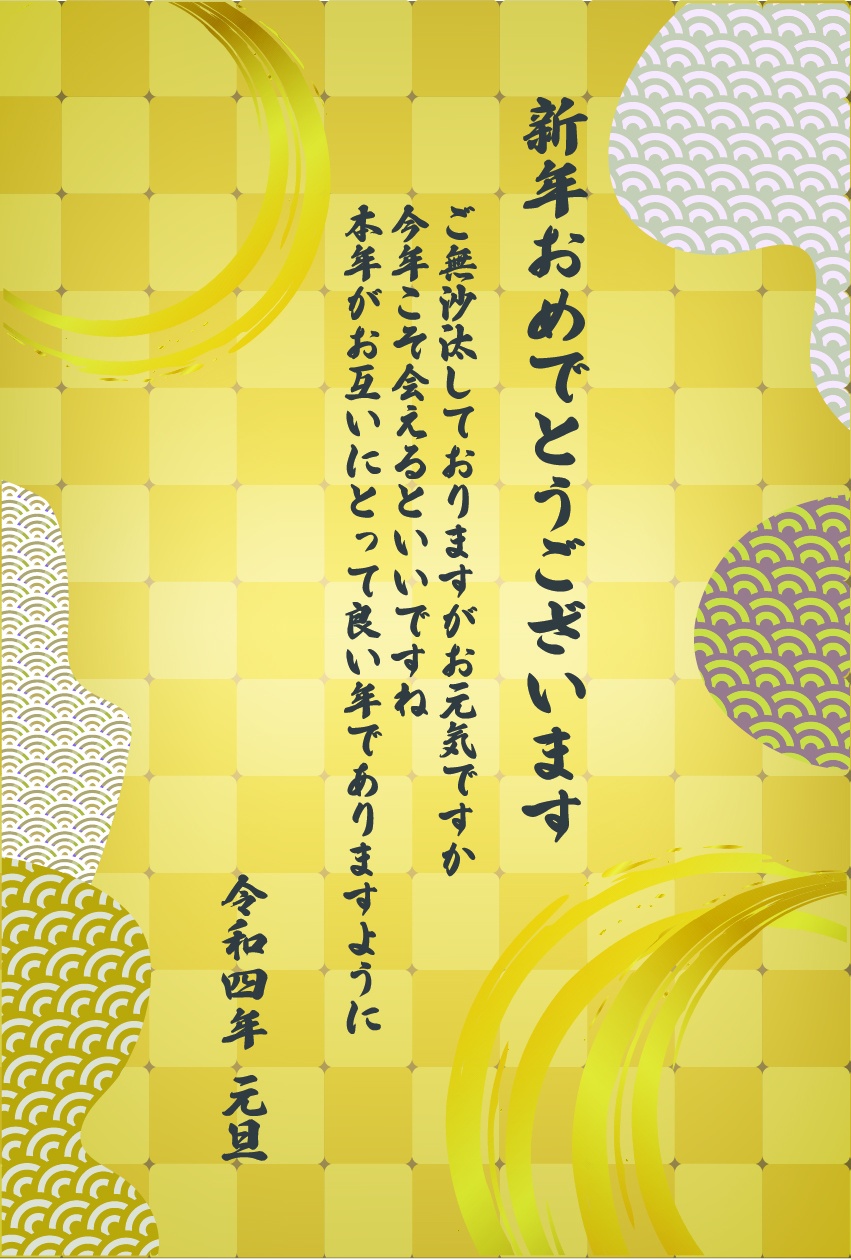 新年おめでとうございます
ご無沙汰しておりますがお元気ですか
今年こそ会えるといいですね
本年がお互いにとって良い年でありますように
令和四年 元旦